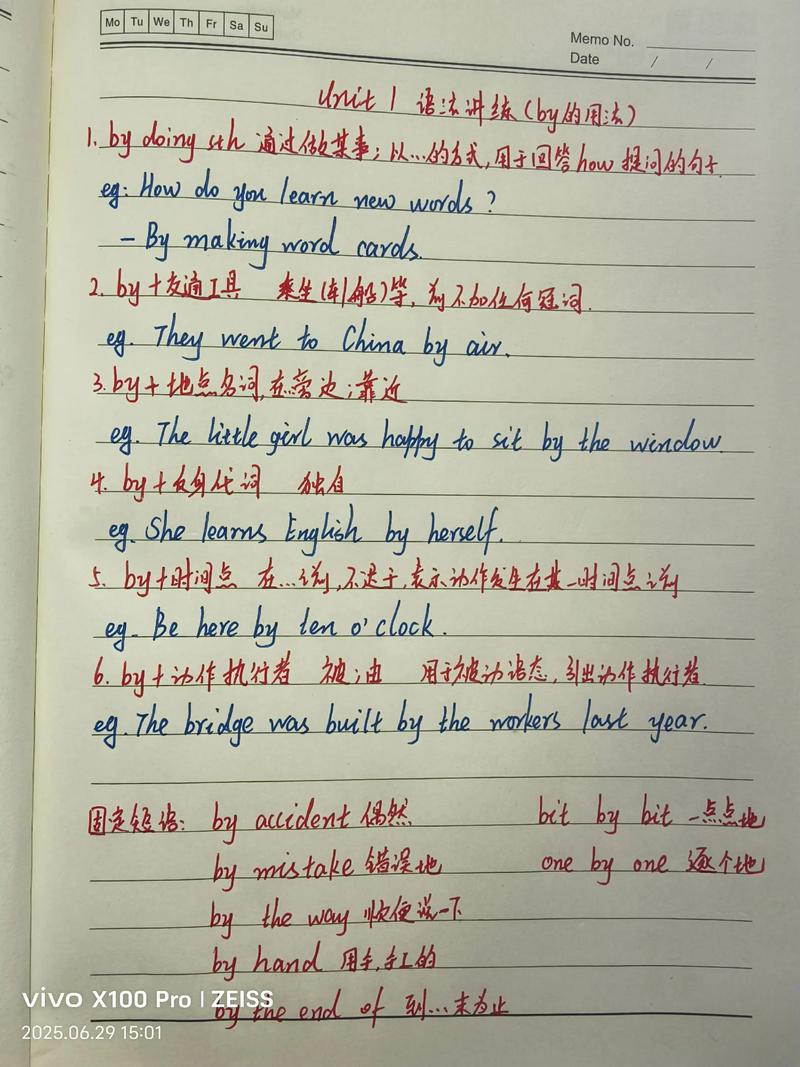 Mo Tu We Th Fr Sa Su
Memo No.
Date / /
Unit 1 语法讲练(by的用法)
1. by doing sth 通过做某事；以…的方式,用于回答how提问的句子.
eg: How do you learn new words?
- By making word cards.
2. by + 交通工具 乘坐(车/船)等, 前不加任何冠词.
eg. They went to China by air.
3. by + 地点名词,在旁边；靠近
eg. The little girl was happy to sit by the window.
4. by + 反身代词 独自
eg. She learns English by herself.
5. by + 时间点 在…前,不迟于,表示动作发生在某一时间点前
eg. Be here by ten o'clock.
6. by + 动作执行者 被；由 用于被动语态,引出动作执行者.
eg. The bridge was built by the workers last year.
固定短语: by accident 偶然 bit by bit 一点点地
by mistake 错误地 one by one 逐个地
by the way 顺便说一下
by hand 用手,手工的
by the end of 到…末为止
vivo X100 Pro | ZEISS
2025.06.29 15:01